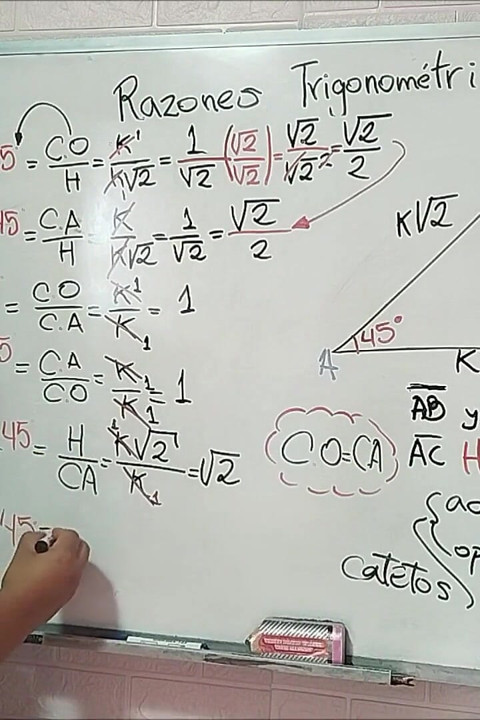 Razones Trigonométri
5 = CO/H = K/K√2 = 1/√2 (√2/√2) = √2/√2² = √2/2
45 = C.A/H = K/K√2 = 1/√2 = √2/2
= CO/C.A = K/K = 1
5 = CA/CO = K/K = 1
45 = H/CA = K√2/K = √2
45 =
K√2
45°
A
K
C.O=CA
AB y
AC H
catetos